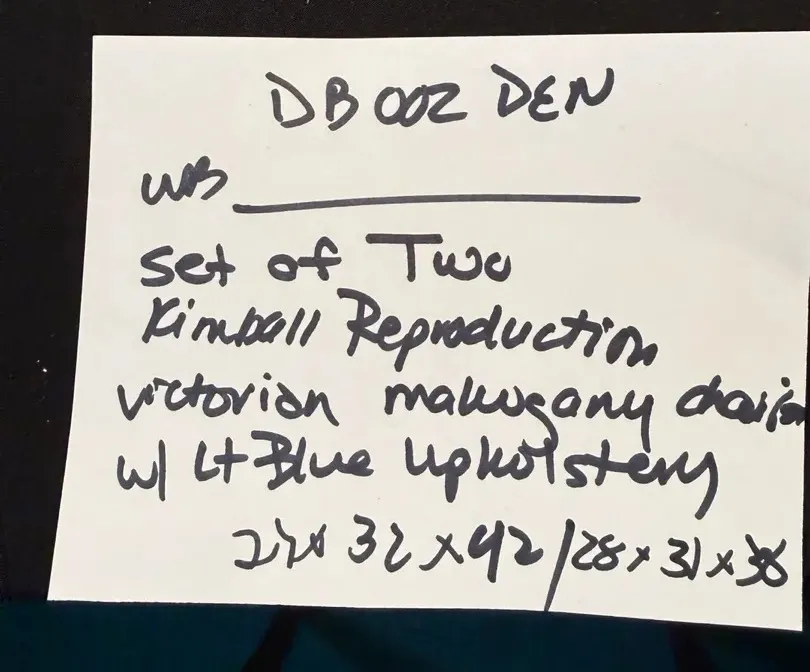 DB 002 DEN
WB
Set of Two
Kimball Reproduction
Victorian mahogany chairs
w/ Lt Blue Upholstery
x 32 x 42 / 28 x 31 x 38